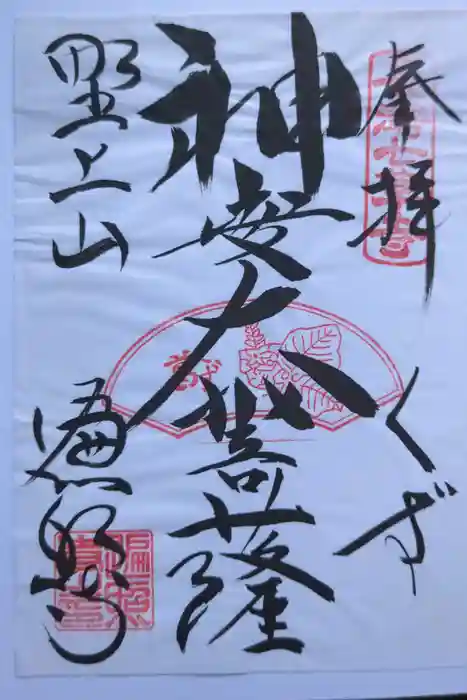 奉拝
くず
神變大菩薩
野上山
遍照寺